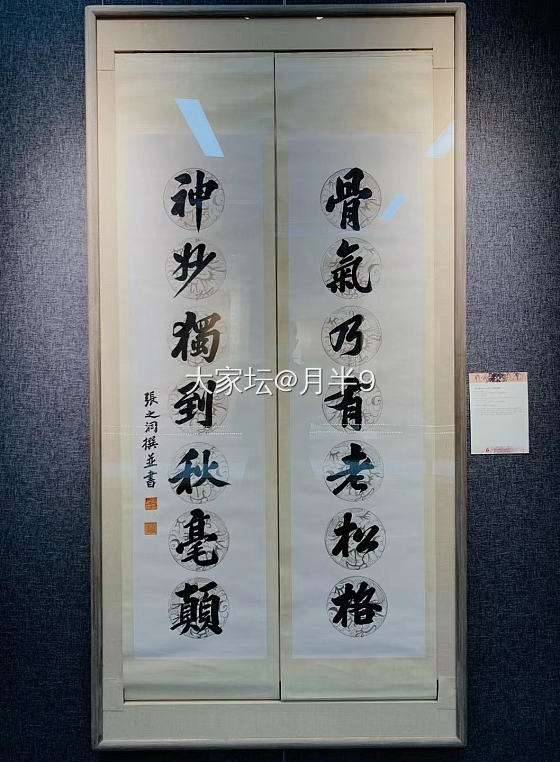 骨氣乃有老松格
神妙獨到秋毫顛
張之洞撰並書
大家坛@月半9